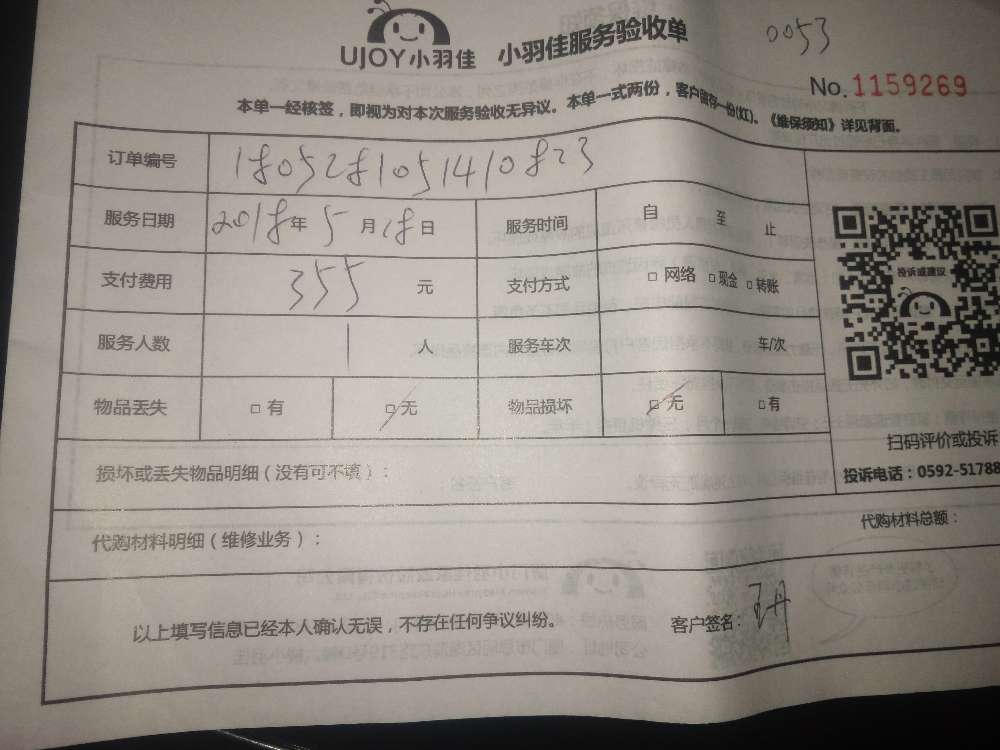 UJOY小羽佳 小羽佳服务验收单
0053
No.1159269
本单一经核签，即视为对本次服务验收无异议。本单一式两份，客户留存一份(红)。《维保须知》详见背面。
订单编号 1805281051410823
服务日期 2018年5月28日 服务时间 自 至 止
支付费用 355元 支付方式 □网络 □现金 □转账
服务人数 1人 服务车次 车/次
物品丢失 □有 □无 物品损坏 □无 □有
投诉或建议
扫码评价或投诉
投诉电话：0592-51788
损坏或丢失物品明细（没有可不填）：
代购材料明细（维修业务）： 代购材料总额：
以上填写信息已经本人确认无误，不存在任何争议纠纷。 客户签名：